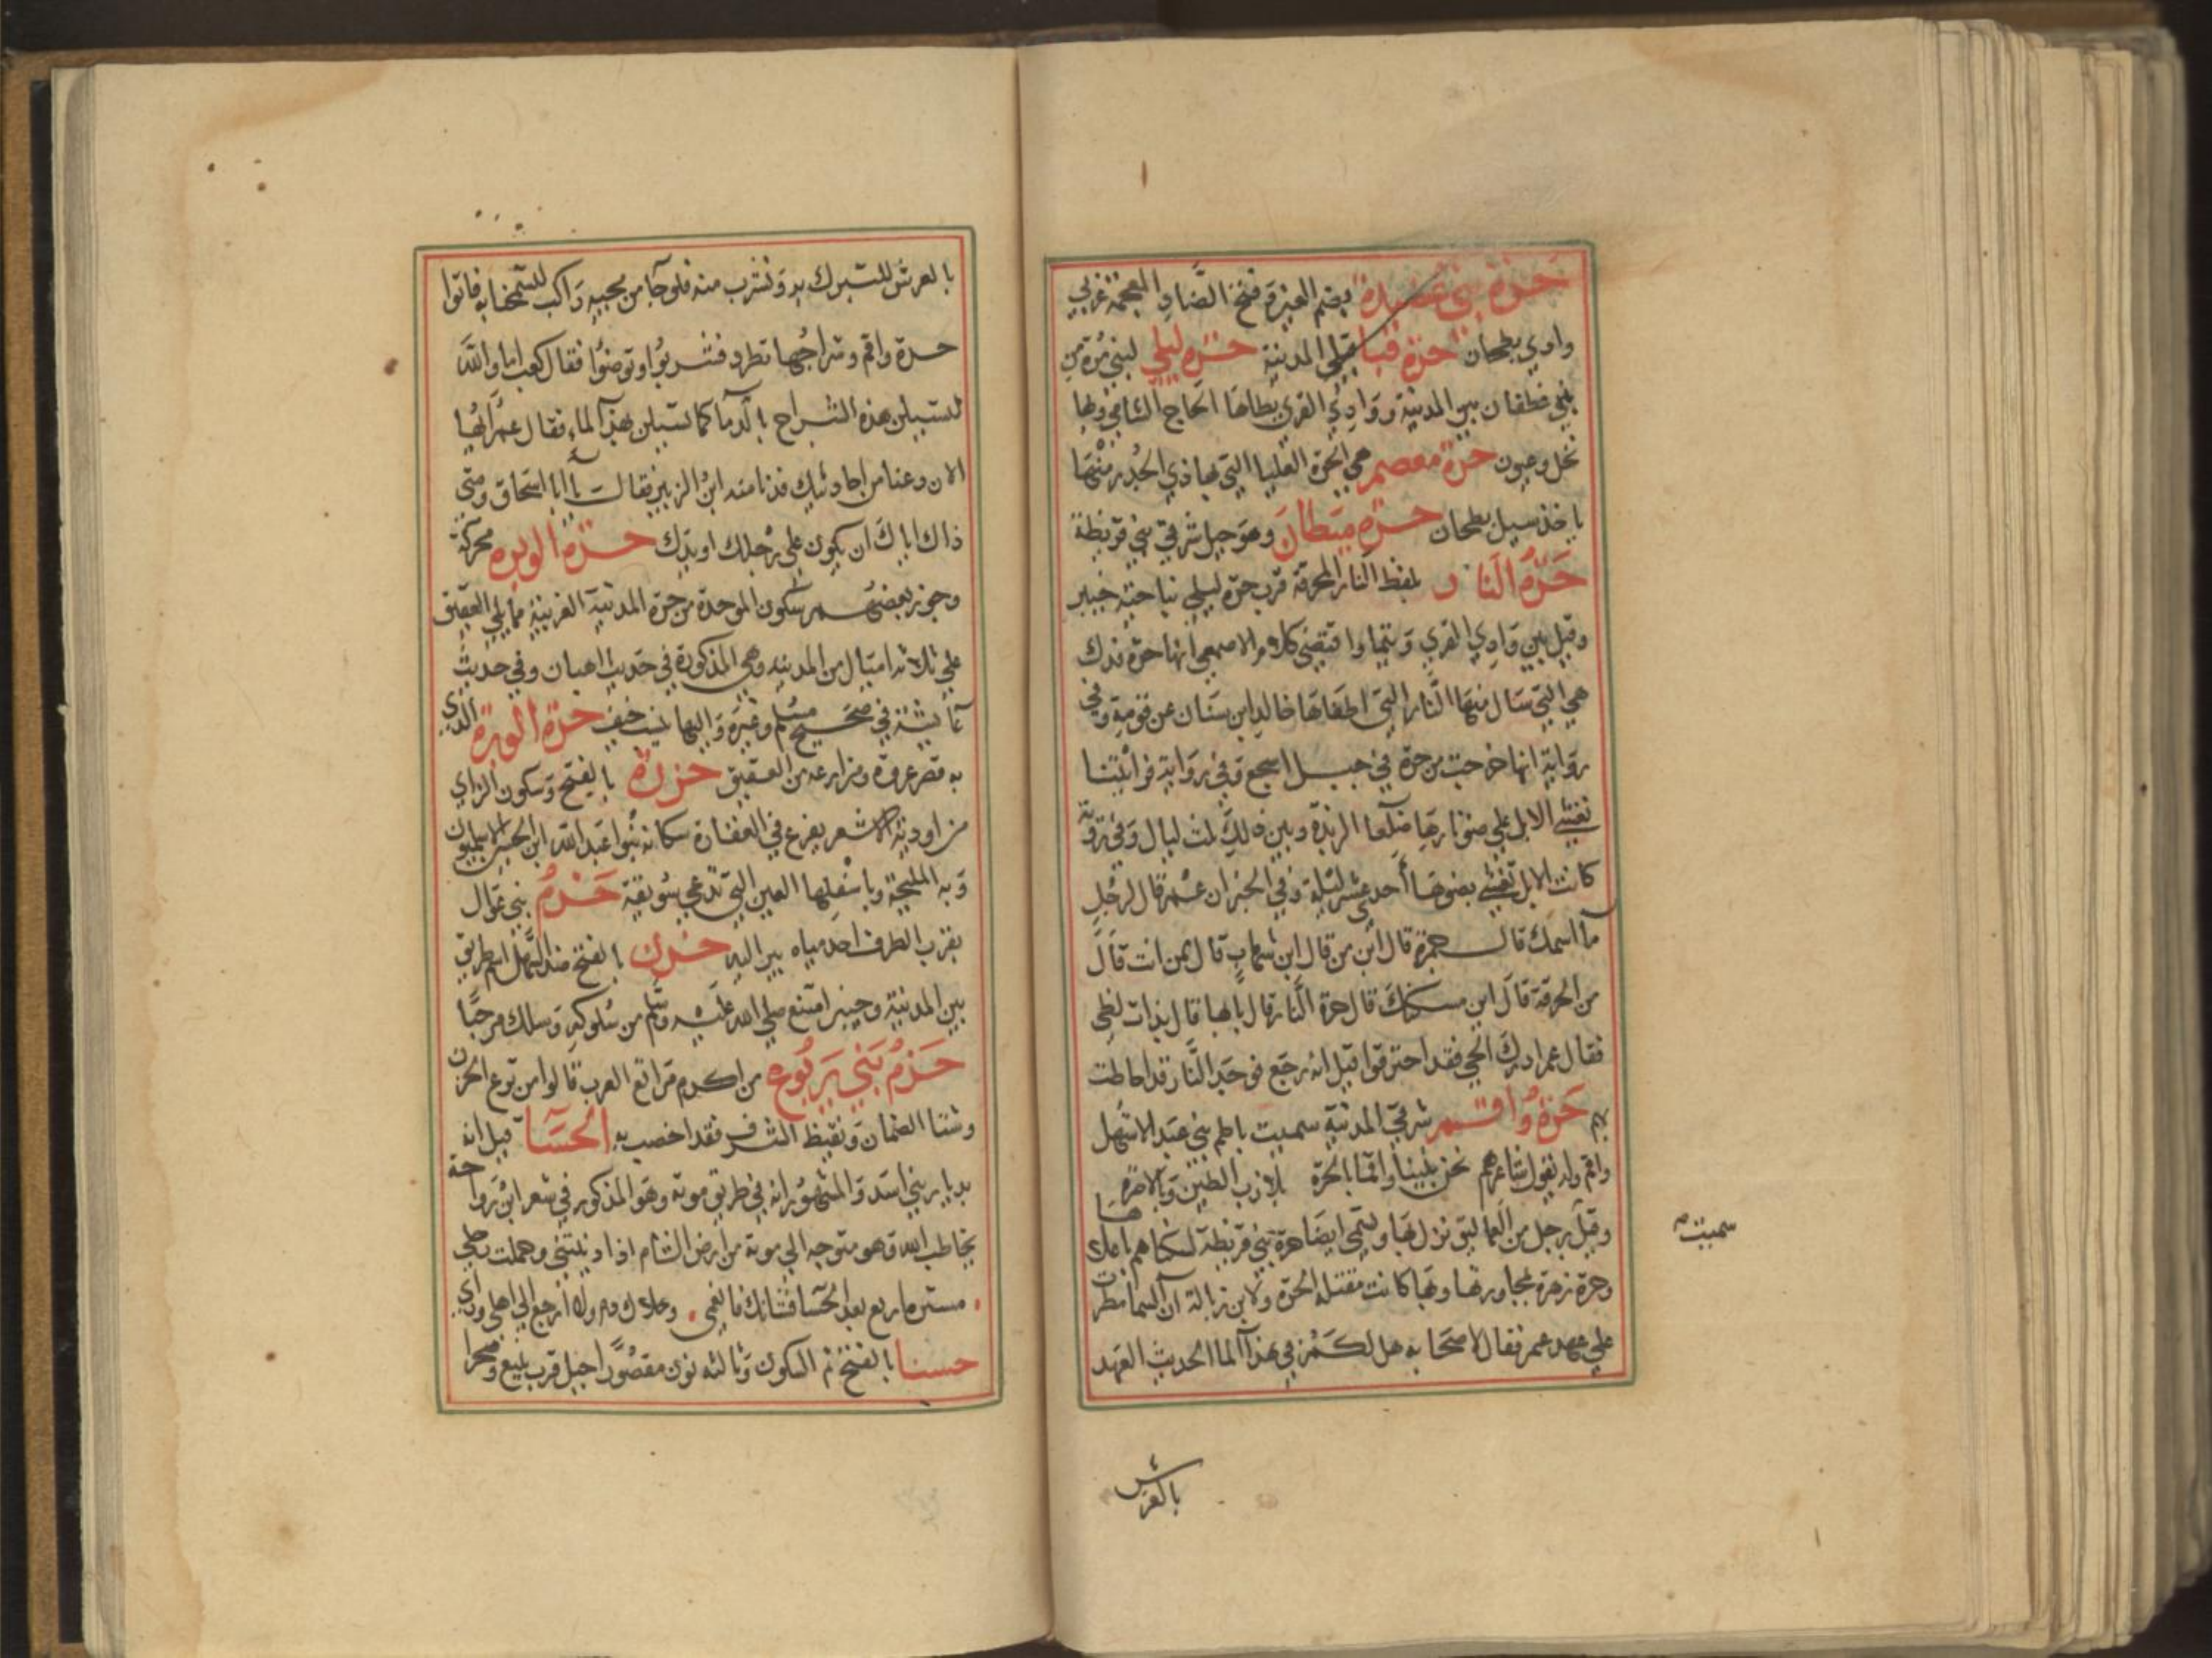 حرة بني عضيدة بضم العين وفتح الضاد المعجمة غربي
وادي بطحان حرة قبا قبلي المدينة حرة ليلي لبني مرة من
بني غطفان بين المدينة ووادي القري يطاها الحاج الشامي وبها
نخل وعيون حرة معصم هي الحرة العليا التي بها ذي الجدر منها
ياخذ سيل بطحان حرة ميطان وهو جبل شرقي بني قريظة
حرة النار بلفظ النار المحرقة قرب حرة ليلي بناحية خيبر
وقيل بين وادي القري وتيما واقتضي كلام الاصمعي انها حرة فدك
هي التي سال منها النار التي اطفاها خالد ابن سنان عن قومه وفي
رواية انها خرجت من حرة في جبل اسجع وفي رواية فرايتنا
نعشي الابل علي ضو نارها ضلعا الربذة وبين ذلك ثلث ليال وفي رواية
كانت الابل تعشي بضوها أحدي عشر ليلة وفي الخبر ان عمر قال لرجل
ما اسمك قال جمرة قال ابن من قال ابن شهاب قال ممن انت قال
من الحرقة قال اين مسكنك قال حرة النار قال بايها قال بذات لظي
فقال عمر ادرك الحي فقد احترقوا قيل انه رجع فوجد النار قد احاطت
بهم حرة واقم شرقي المدينة سميت باطم بني عبد الاشهل
واقم وله يقول شاعرهم نحن بنينا واقما بالحرة بلازب الطين وبالاصرة
وقيل برجل من العماليق نزل بها ويسمي ايضا حرة بني قريظة لسكناهم باعلاها
وحرة زهرة لمجاورتها وبها كانت مقتلة الحرة ولابن زبالة ان السما مطرت
علي عهد عمر فقال لاصحابه هل لكم في هذا الما الحديث العهد
سميت صح
بالعرش
بالعرش للتبرك به ونشرب منه فلو جا من مجيبه راكب لتمسحنا به فاتوا
حرة واقم وشراجها تطرد فشربوا وتوضوا فقال كعب اما والله
لتسيلن هذه الشراج بالدما كما تسيلن بهذا الماء فقال عمر ايها
الان دعنا من احاديثك فدنا منه ابن الزبير فقال يا ابا اسحاق ومتي
ذاك اياك ان يكون علي رجلك او يدك حرة الوبرة محركة
وجوز بعضهم سكون الموحدة من حرة المدينة الغربية مما يلي العقيق
علي ثلاثة اميال من المدينة وهي المذكورة في حديث اهبان وفي حديث
عائشة في صحيح مسلم وغيره واليها ينسب خيف حرة الوبرة الذي
به قصر عروة ومزارعه من العقيق حزرة بالفتح وسكون الزاي
من اودية الاشعر يفرغ في الفقارة سكانه بنوا عبد الله ابن الحصين الاسلميون
وبه المليحة وباسفلها العين التي تدعي سويقة حزم بني عوال
بقرب الطرف احد مياه بير اليه حزن بالفتح ضد السهل اسم طريق
بين المدينة وخيبر امتنع صلي الله عليه وسلم من سلوكه وسلك مرحبا
حزم بني يربوع من اكرم مراتع العرب قالوا من تربع الحزن
وشتا الصمان وتقيظ الشرف فقد اخصب به الحسا قيل انه
بديار بني اسد والمشهور انه في طريق موته وهو المذكور في شعر ابن رواحة
يخاطب ناقته وهو متوجه الي موتة من ارض الشام اذا ادنيتني وحملت رحلي
مسيرة اربع بعد الحسا فشانك فانعمي وخلاك ذم ولا ارجع الي اهلي وراي
حسنا بالفتح ثم السكون وثالثه نون مقصورا جبل قرب ينبع وصحرا